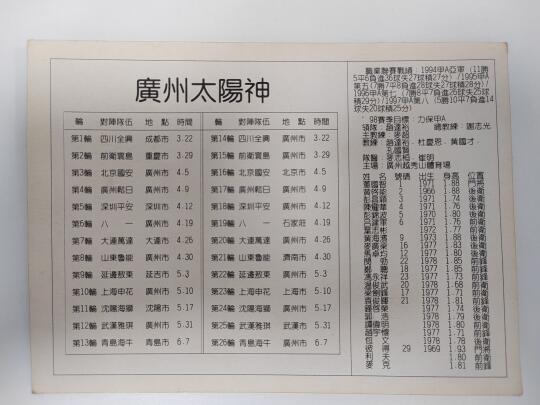 廣州太陽神
輪 對陣隊伍 地點 時間 輪 對陣隊伍 地點 時間
第1輪 四川全興 成都市 3.22 第14輪 四川全興 廣州市 3.22
第2輪 前衛寰島 重慶市 3.29 第15輪 前衛寰島 廣州市 3.29
第3輪 北京國安 廣州市 4.5 第16輪 北京國安 北京市 4.5
第4輪 廣州鬆日 廣州市 4.9 第17輪 廣州鬆日 廣州市 4.9
第5輪 深圳平安 深圳市 4.12 第18輪 深圳平安 廣州市 4.12
第6輪 八一 廣州市 4.19 第19輪 八一 石家莊 4.19
第7輪 大連萬達 大連市 4.26 第20輪 大連萬達 廣州市 4.26
第8輪 山東魯能 廣州市 4.30 第21輪 山東魯能 濟南市 4.30
第9輪 延邊敖東 延吉市 5.3 第22輪 延邊敖東 廣州市 5.3
第10輪 上海申花 廣州市 5.10 第23輪 上海申花 上海市 5.10
第11輪 沈陽海獅 沈陽市 5.17 第24輪 沈陽海獅 廣州市 5.17
第12輪 武漢雅琪 廣州市 5.31 第25輪 武漢雅琪 武漢市 5.31
第13輪 青島海牛 青島市 6.7 第26輪 青島海牛 廣州市 6.7
職業聯賽戰績：1994甲A亞軍（11勝
5平6負進36球失27球積27分）/1995甲A
第五（7勝7平8負進28球失27球積28分）/
1996甲A第七（7勝8平7負進26球失25球
積29分）/1997甲A第八（5勝10平7負進14
球失20球積25分）
'98賽季目標：力保甲A
領隊：趙達裕 總教練：謝志光
主教練：麥超
教練：趙達裕、杜慶恩、黃國才、
孔國賢
隊醫：麥志柏、崔明
主場：廣州越秀山體育場
姓名 號碼 出生 身高 位置
董國智 1 1971 1.88 門將
黃啓能 2 1966 1.88 後衛
彭昌穎 3 1974 1.74 後衛
陳耀華 4 1971 1.76 後衛
彭錦波 5 1970 1.80 後衛
呂建軍 6 1971 1.76 前衛
葉志彬 1972 1.77 前衛
黃海濱 9 1973 1.88 後衛
麥廣梁 16 1977 1.83 後衛
馬卓均 12 1977 1.80 後衛
勁 22 1978 1.85 前鋒
鄭聰 18 1977 1.85 前鋒
馮永祥 23 1977 1.73 前衛
溫俊武 20 1978 1.68 前衛
梁劍鋒 17 1977 1.71 前衛
袁俊暉 21 1978 1.81 前鋒
鍾啓榮 1977 1.74 後衛
郭浩 1978 1.79 後衛
譚偉宇 1978 1.80 後衛
趙明 1977 1.71 前衛
包文 1978 1.78 後衛
彼得 29 1969 1.93 門將
利夫 1.80 前衛
麥克 1.81 前鋒